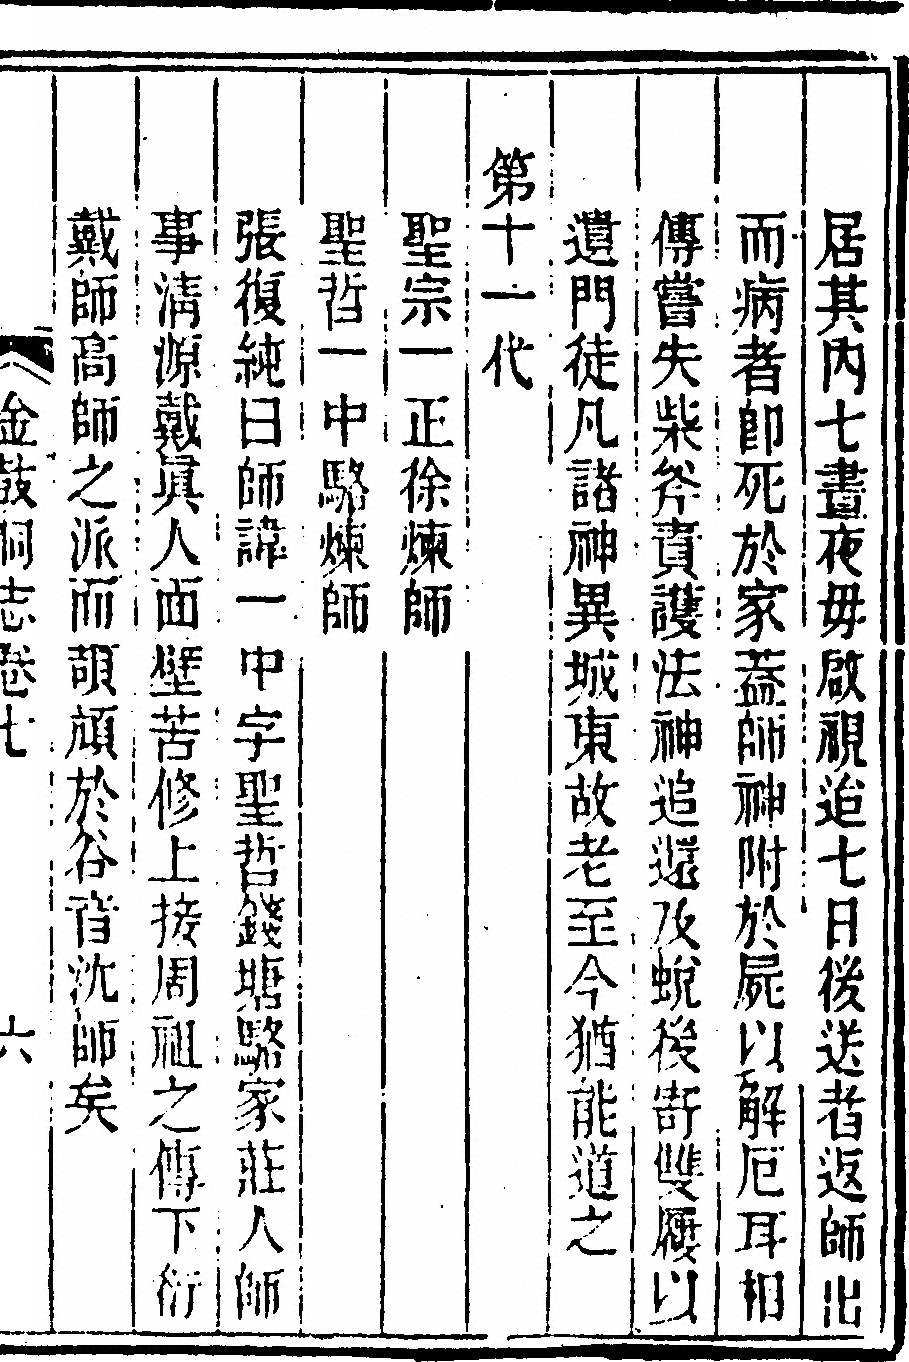 居其內七晝夜毋啟視迨七日後送者返師出
而病者卽死於家蓋師神附於屍以解厄耳相
傳嘗失柴斧責護法神追還及蛻後寄雙履以
遺門徒凡諸神異城東故老至今猶能道之
第十一代
聖宗一正徐煉師
聖哲一中駱煉師
張復純曰師諱一中字聖哲錢塘駱家莊人師
事清源戴眞人面壁苦修上接周祖之傳下衍
戴師高師之派而頡頏於谷音沈師矣
金鼓洞志卷七
六